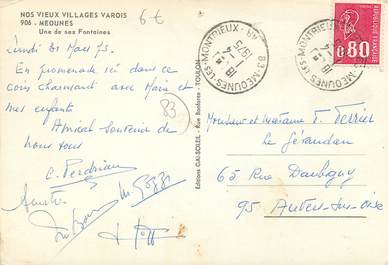 NOS VIEUX VILLAGES VAROIS
906 - MEOUNES
Une de ses Fontaines
6 €
Lundi 31 Mars 75.
En promenade ici dans ce
coin charmant avec Main et
mes enfants
Amical Souvenir de
nous tous
C. Perdrian
83
Editions GAI-SOLEIL - Rue Bordone - TOULON
83-MEOUNES-LES-MONTRIEUX
1975
83-MEOUNES-LES-MONTRIEUX
REPUBLIQUE FRANCAISE
0,80
Monsieur et Madame T. Terrier
le Gérandan
65 Rue Daubigny
95 Auvers-sur-Oise